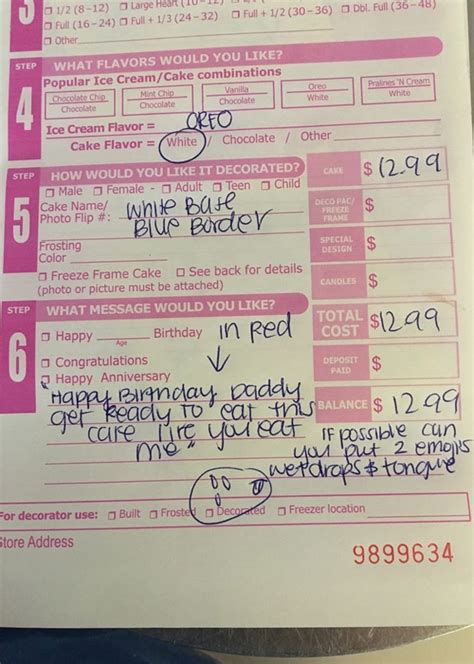 ☐ 1/2 (8-12) ☐ Large Heart (10-12)
☐ Full (16-24) ☐ Full + 1/3 (24-32) ☐ Full + 1/2 (30-36) ☐ Dbl. Full (36-48)
☐ Other
STEP 4 WHAT FLAVORS WOULD YOU LIKE?
Popular Ice Cream/Cake combinations
Chocolate Chip Mint Chip Vanilla Oreo Pralines 'N Cream
Chocolate Chocolate Chocolate White White
Ice Cream Flavor = OREO
Cake Flavor = White / Chocolate / Other
STEP 5 HOW WOULD YOU LIKE IT DECORATED?
☐ Male ☐ Female - ☐ Adult ☐ Teen ☐ Child
Cake Name/ White Base
Photo Flip #: Blue Border
Frosting
Color
☐ Freeze Frame Cake ☐ See back for details
(photo or picture must be attached)
CAKE $ 12.99
DECO PAC/
FREEZE
FRAME $
SPECIAL
DESIGN $
CANDLES $
STEP 6 WHAT MESSAGE WOULD YOU LIKE?
☐ Happy Birthday in Red
Age
☐ Congratulations
☐ Happy Anniversary
"Happy Birthday Daddy
get Ready to eat this
cake like you eat
me"
TOTAL
COST $12.99
DEPOSIT
PAID $
BALANCE $ 12.99
If possible can
you put 2 emojis
wetdrops & tongue
For decorator use: ☐ Built ☐ Frosted ☐ Decorated ☐ Freezer location
Store Address
9899634